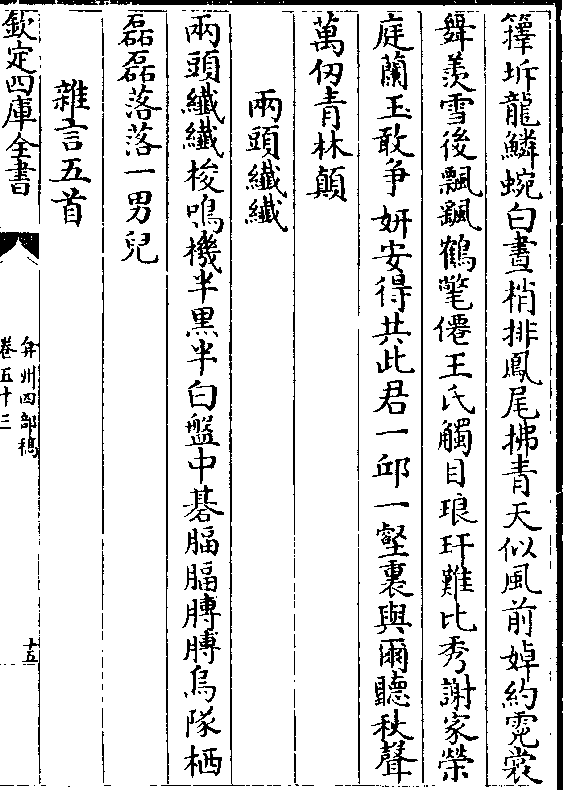 籜坼龍鱗蜿白晝梢排鳳尾拂青天似風前婥約霓裳
舞羨雪後飄飄鶴氅僊王氏觸目琅玕難比秀謝家榮
庭蘭玉敢争妍安得共此君一邱一壑裏與爾聽秋聲
萬仞青林顛
兩頭纖纖
兩頭纖纖梭鳴機半黒半白盤中棊腷腷膊膊烏隊栖
磊磊落落一男兒
雜言五首
欽定四庫全書
弇州四部稿
卷五十三
十五